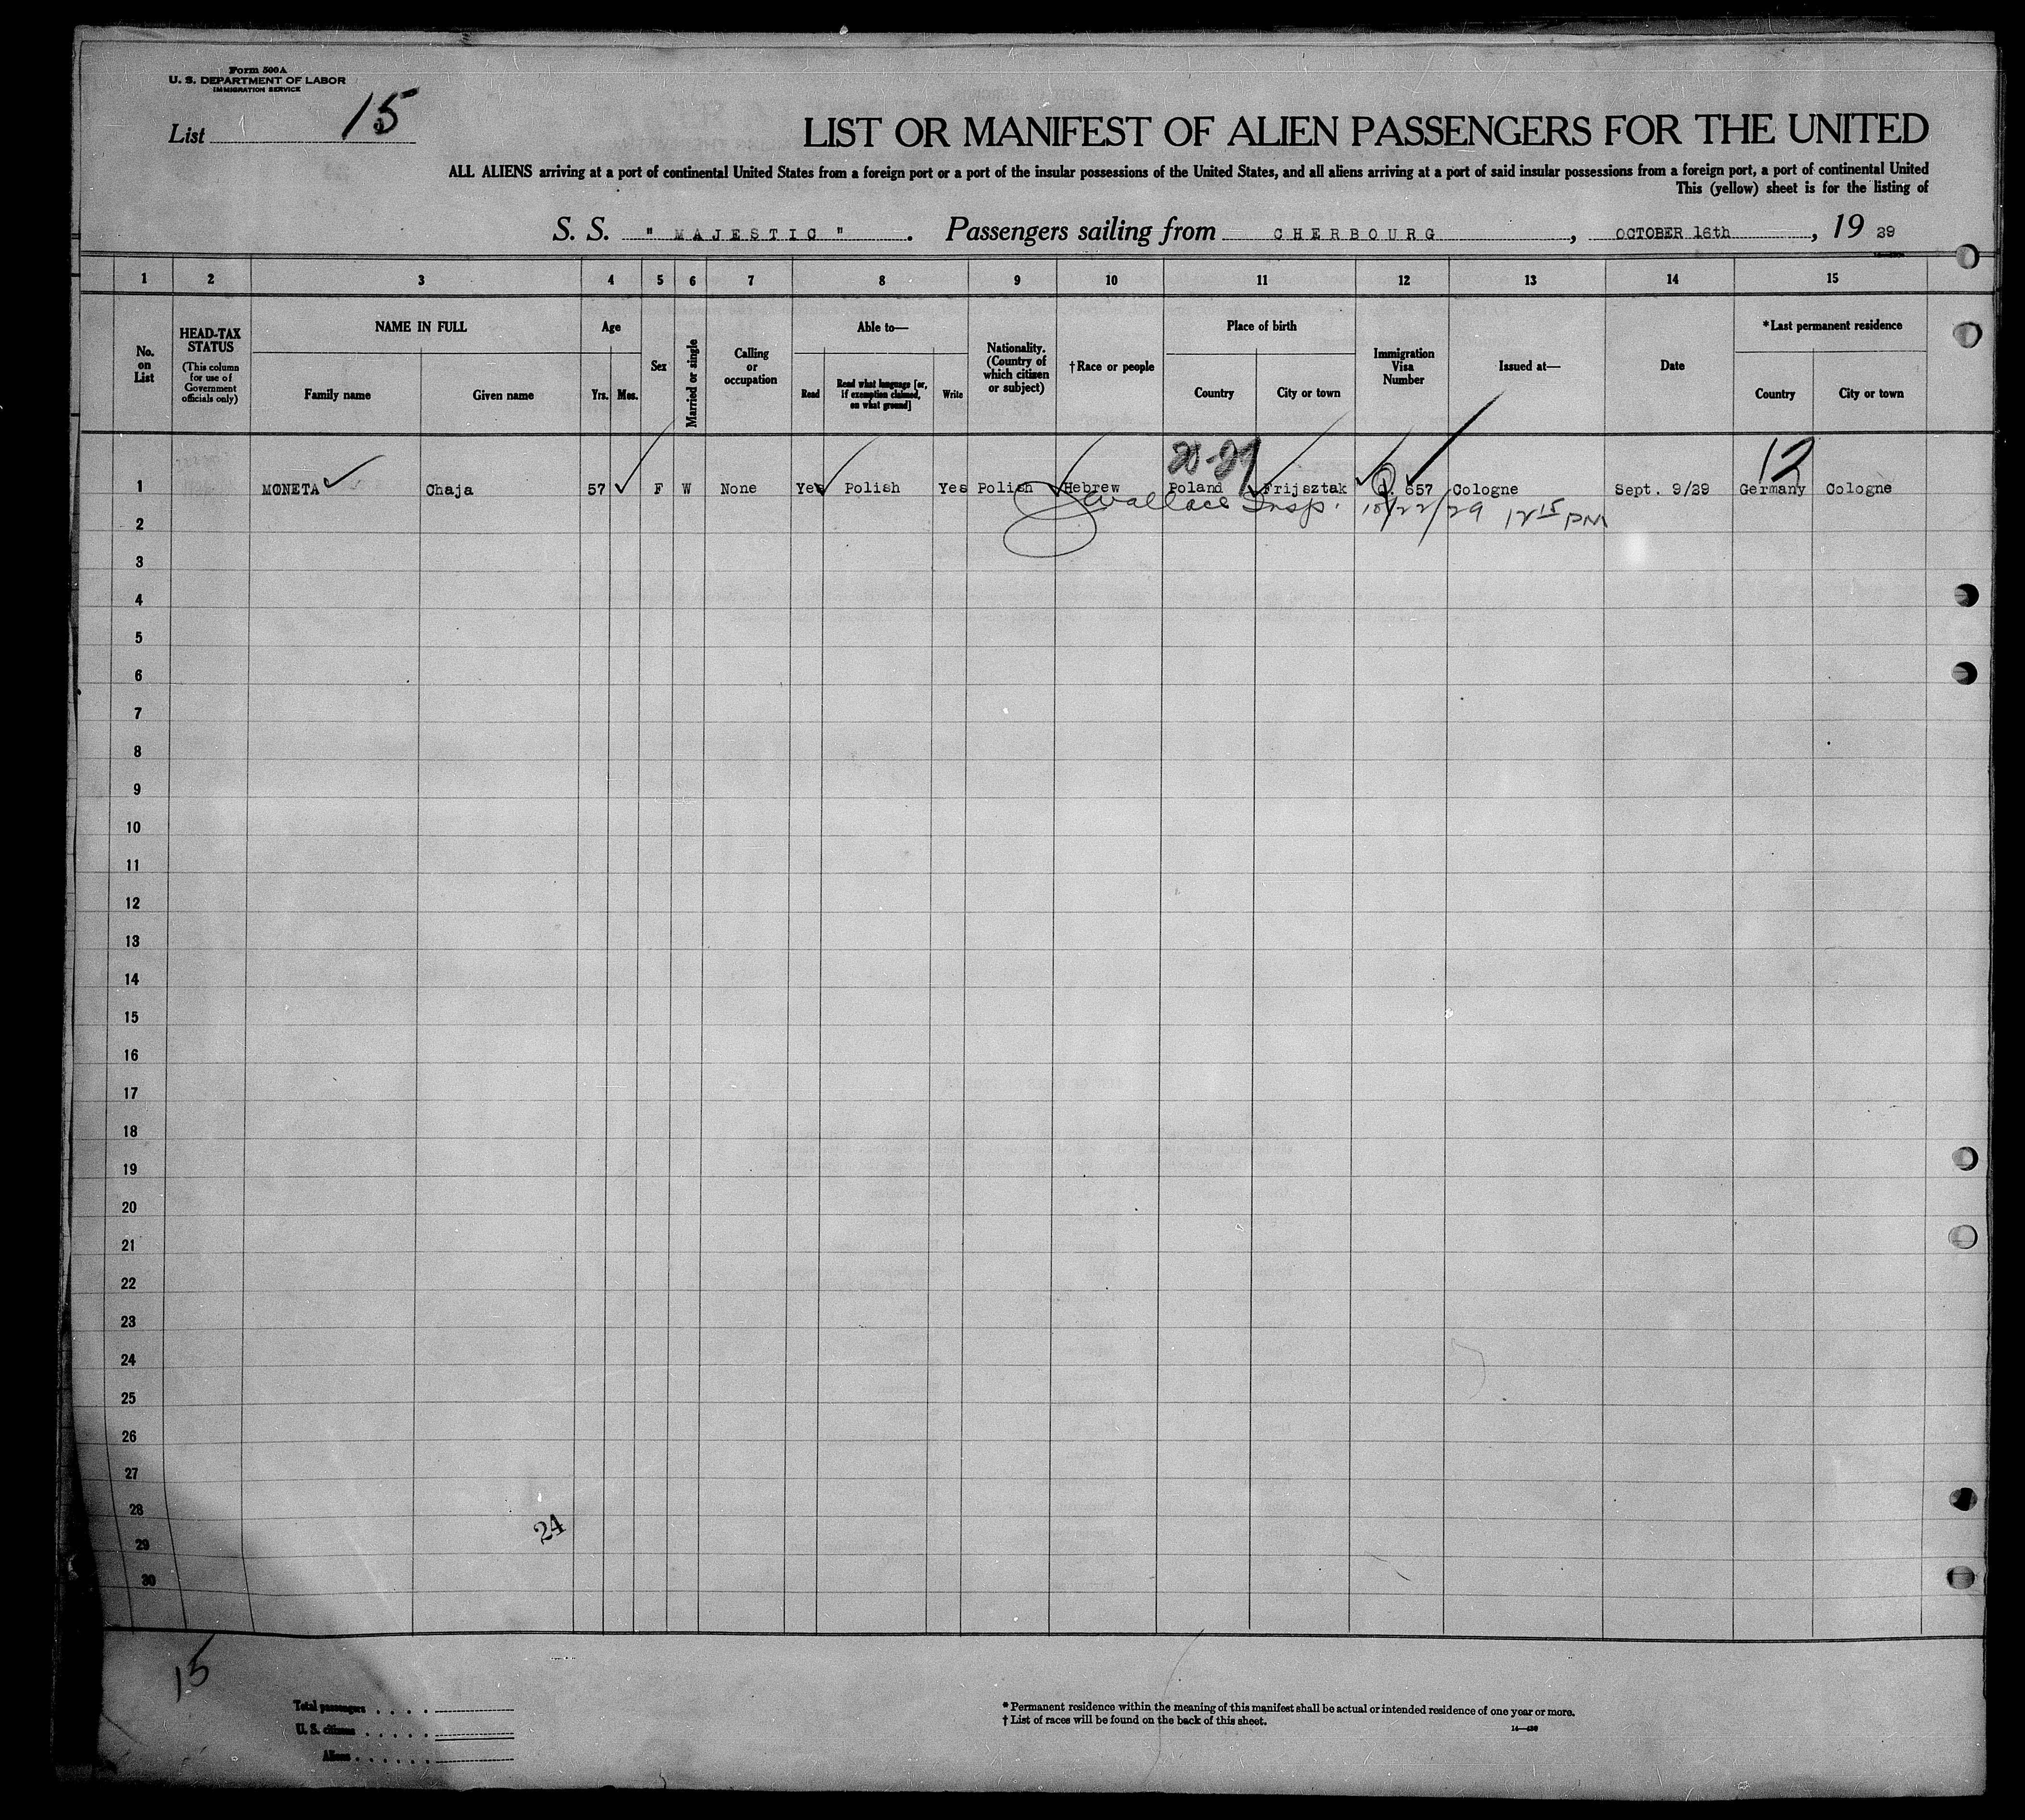 Form 500A
U. S. DEPARTMENT OF LABOR
IMMIGRATION SERVICE
List 15
LIST OR MANIFEST OF ALIEN PASSENGERS FOR THE UNITED
ALL ALIENS arriving at a port of continental United States from a foreign port or a port of the insular possessions of the United States, and all aliens arriving at a port of said insular possessions from a foreign port, a port of continental United
This (yellow) sheet is for the listing of
S. S. " MAJESTIC " . Passengers sailing from CHERBOURG , OCTOBER 16th , 19 29
1 2 3 4 5 6 7 8 9 10 11 12 13 14 15
No. on List
HEAD-TAX STATUS
(This column for use of Government officials only)
NAME IN FULL
Family name Given name
Age
Yrs. Mos.
Sex
Married or single
Calling or occupation
Able to—
Read
Read what language [or, if exemption claimed, on what ground]
Write
Nationality. (Country of which citizen or subject)
†Race or people
Place of birth
Country City or town
Immigration Visa Number
Issued at—
Date
*Last permanent residence
Country City or town
12
1 MONETA Chaja 57 F W None Yes Polish Yes Polish Hebrew Poland Frijsztak Q. 657 Cologne Sept. 9/29 Germany Cologne
Wallace Insp. 10/22/29 12 15 PM
2
3
4
5
6
7
8
9
10
11
12
13
14
15
16
17
18
19
20
21
22
23
24
25
26
27
28
24
29
30
15
Total passengers . . . .
U. S. citizens . . . . .
Aliens . . . . . .
* Permanent residence within the meaning of this manifest shall be actual or intended residence of one year or more.
† List of races will be found on the back of this sheet.